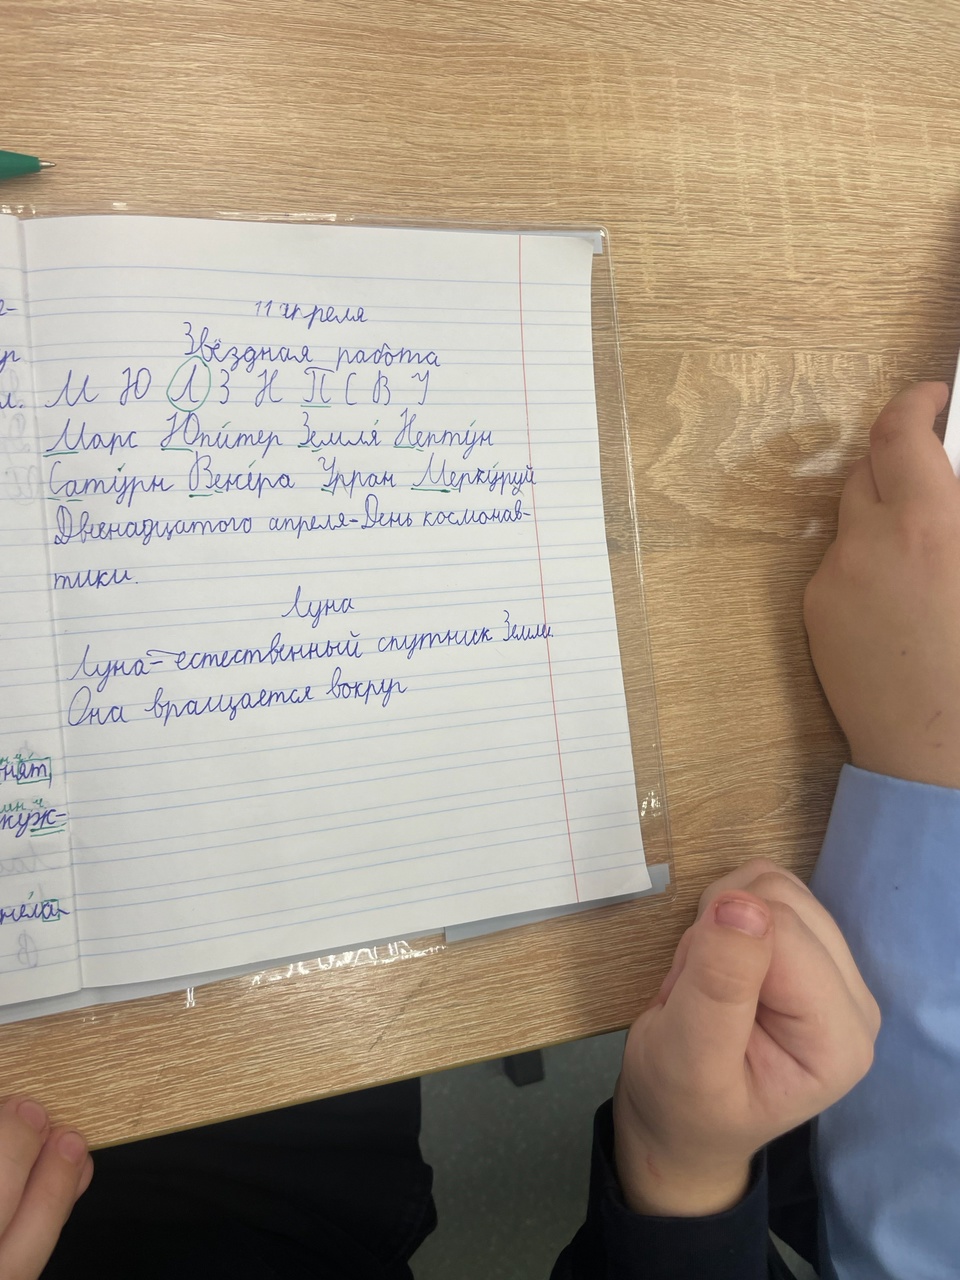 11 апреля
Звёздная работа
М Ю Л З Н П С В У
Марс Юпи́тер Земля́ Непту́н
Сату́рн Вене́ра Урран Мерку́руй
Двенадцатого апреля-День космонав-
тики.
Луна
Луна-естественный спутник Земли.
Она вращается вокруг
нят,
куж-